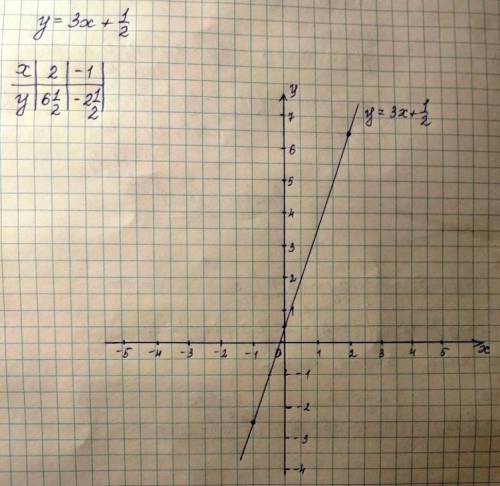 y = 3x + 1/2
x | 2 | -1
y | 6 1/2 | -2 1/2
y
7
y = 3x + 1/2
6
5
4
3
2
1
-5 -4 -3 -2 -1 0 1 2 3 4 5 x
-1
-2
-3
-4